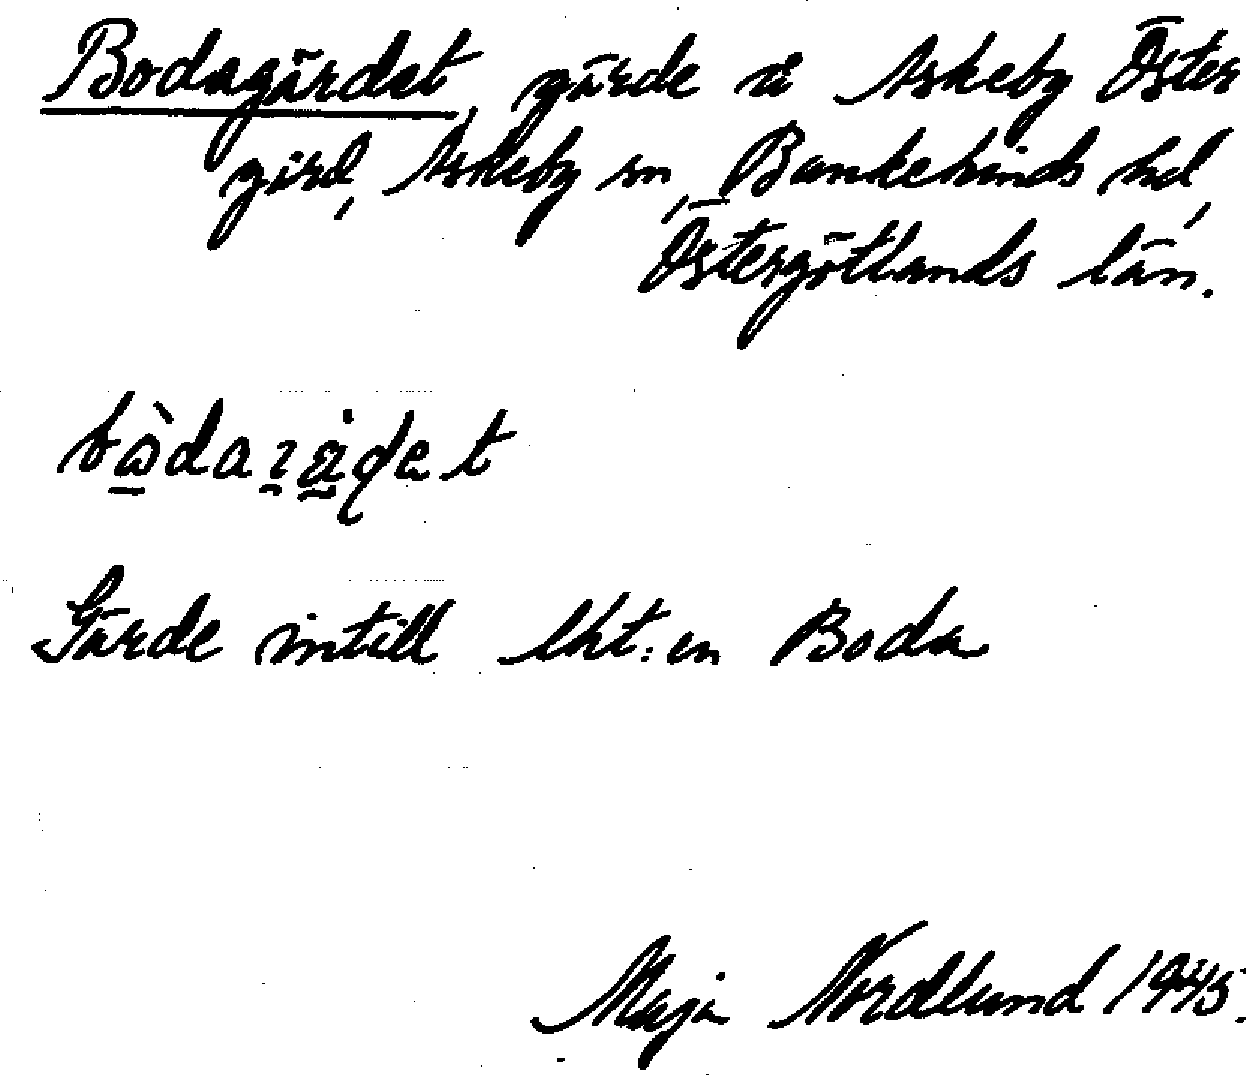 Bodagärdet, gärde å Askeby Öster
gård, Askeby sn, Bankekinds hd,
Östergötlands län.
Gärde intill lht:en Boda
Maja Nordlund 1945.